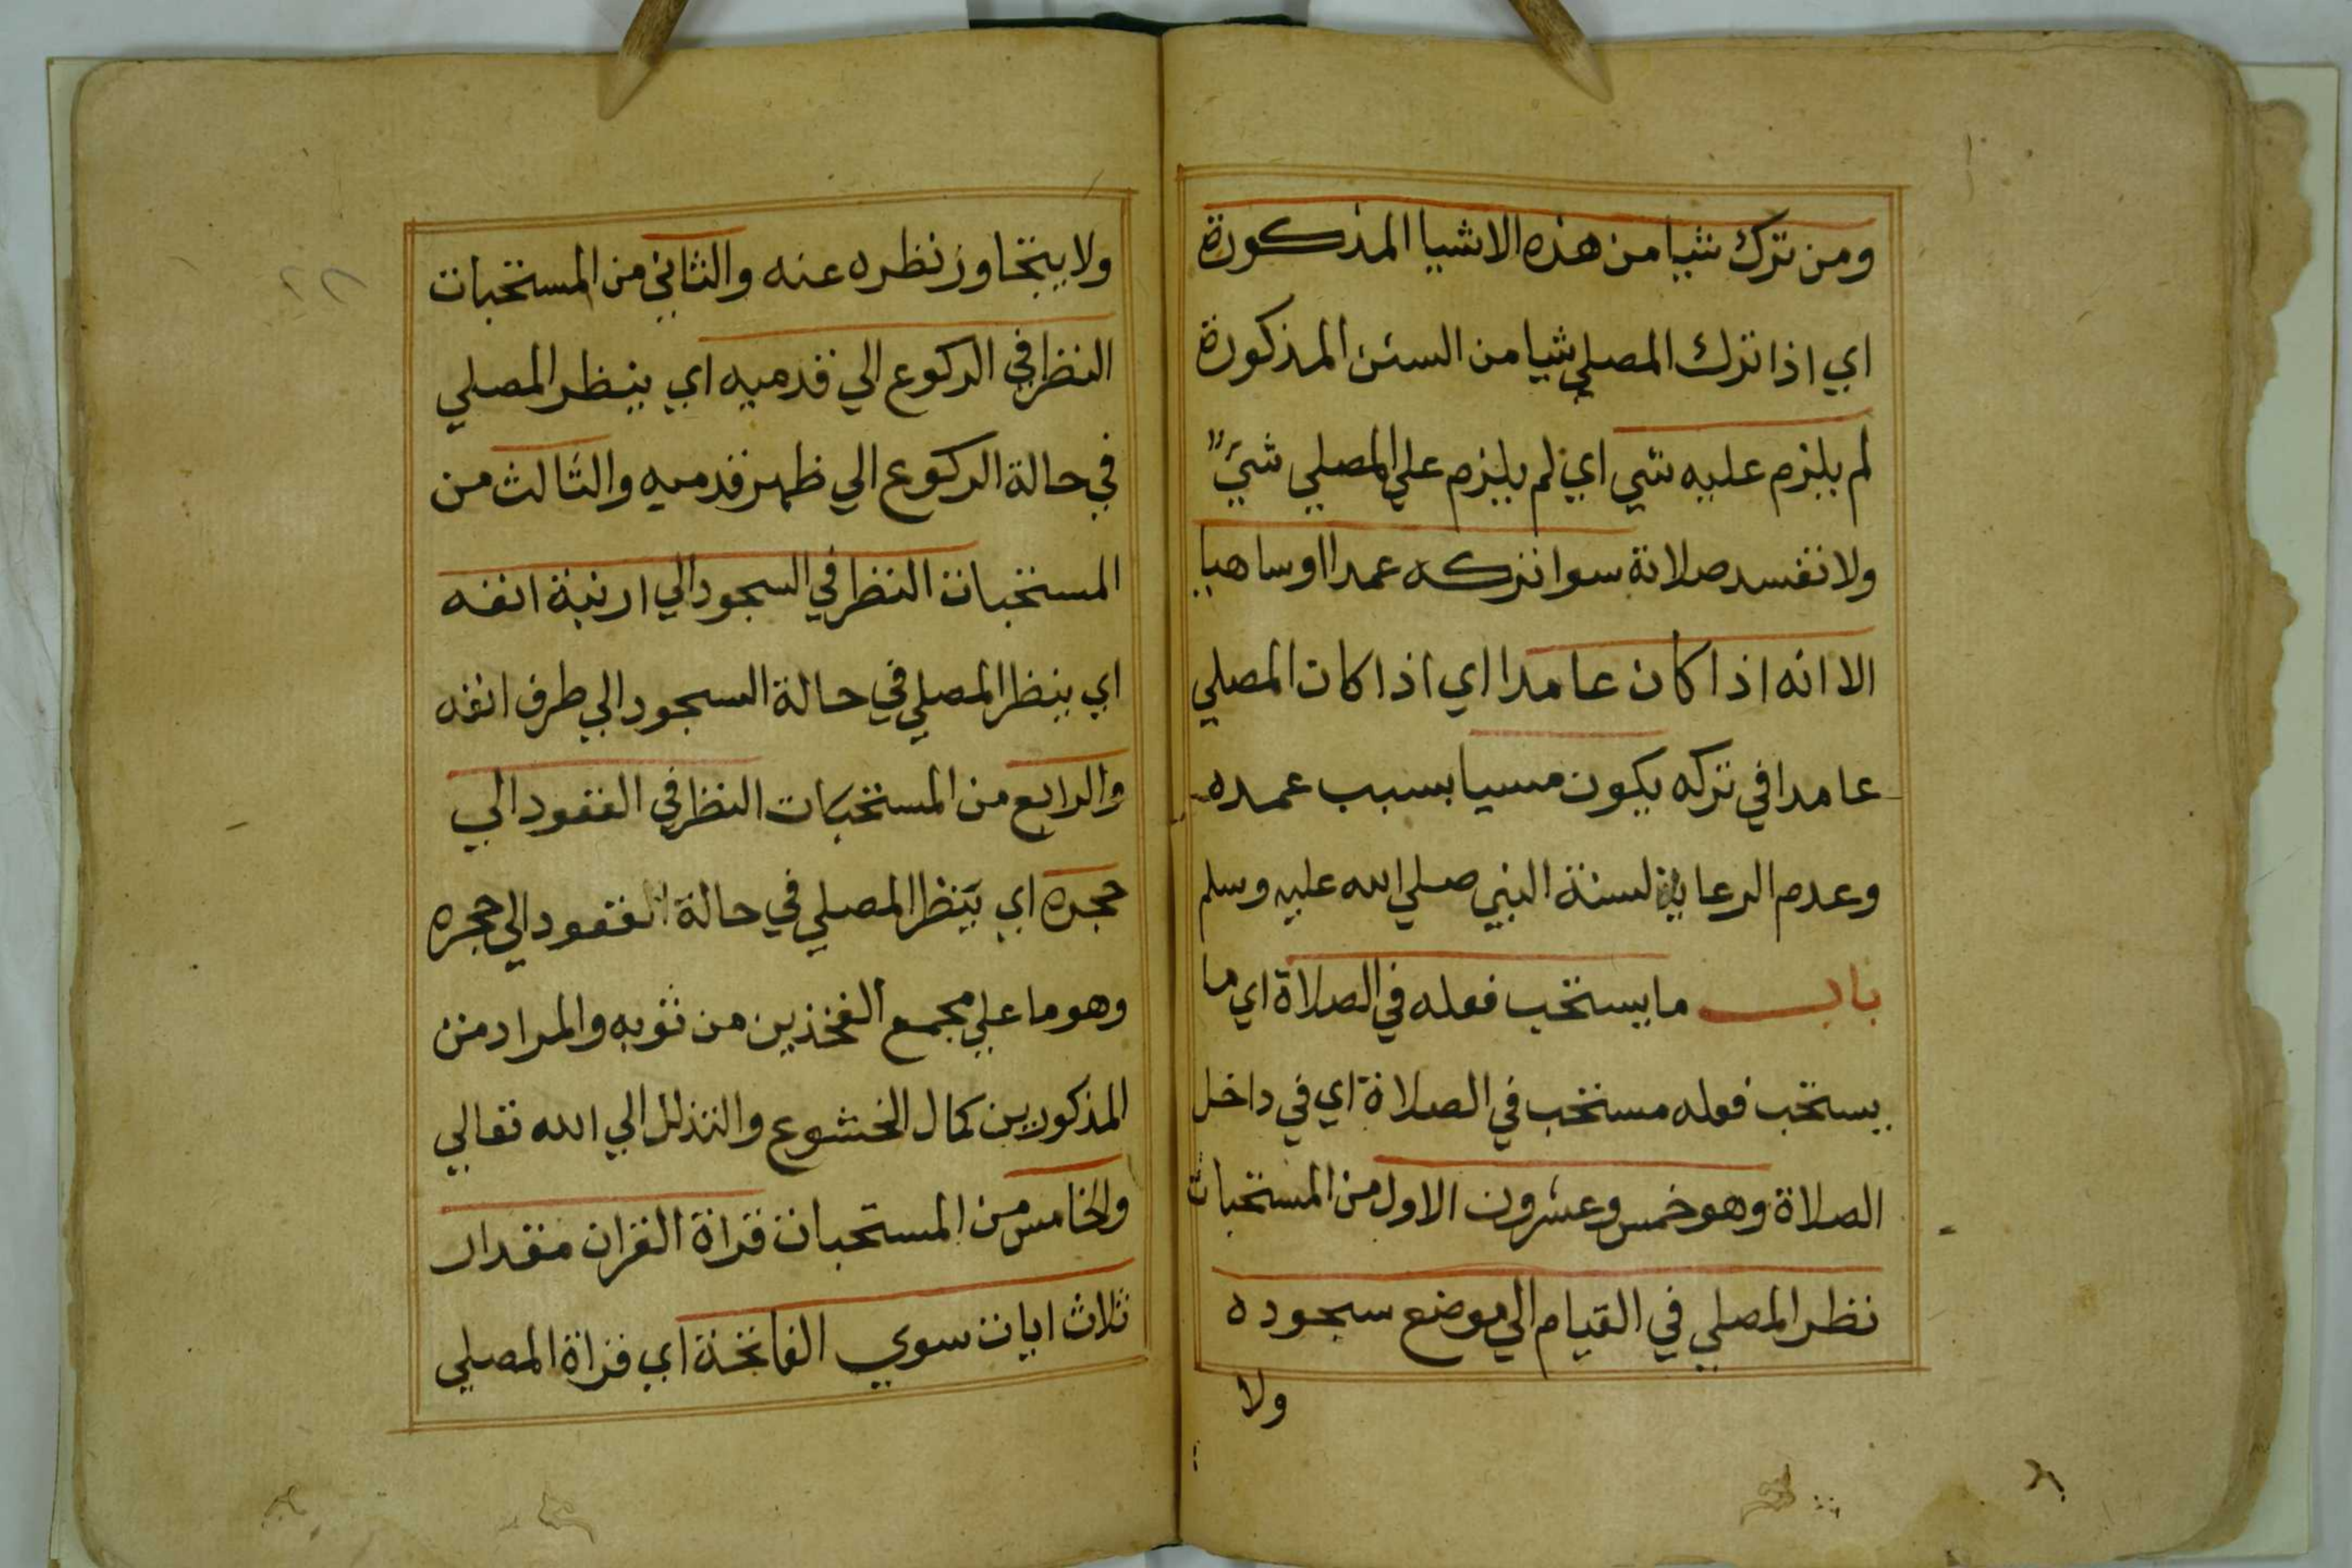 ومن ترك شيا من هذه الاشيا المذكورة
اي اذا ترك المصلي شيا من السنن المذكورة
لم يلزم عليه شي اي لم يلزم علي المصلي شيءٌ
ولا تفسد صلاتة سوا تركه عمدا او ساهيا
الا انه اذا كان عامدا اي اذا كان المصلي
عامدا في تركه يكون مسيا بسبب عمده
وعدم الرعاية لسنة النبي صلي الله عليه وسلم
باب ما يستحب فعله في الصلاة اي ما
يستحب فعله مستحب في الصلاة اي في داخل
الصلاة وهو خمس وعشرون الاول من المستحبات
نظر المصلي في القيام الي موضع سجوده
ولا
ولا يتجاوز نظره عنه والثاني من المستحبات
النظر في الركوع الي قدميه اي ينظر المصلي
في حالة الركوع الي ظهر قدميه والثالث من
المستحبات النظر في السجود الي ارنبة انفه
اي ينظر المصلي في حالة السجود الي طرف انفه
والرابع من المستحبات النظر في القعود الي
حجره اي ينظر المصلي في حالة القعود الي حجره
وهو ما علي مجمع الفخذين من ثوبه والمراد من
المذكورين كمال الخشوع والتذلل الي الله تعالي
والخامس من المستحبات قراة القران مقدار
ثلاث ايات سوي الفاتحة اي قراة المصلي